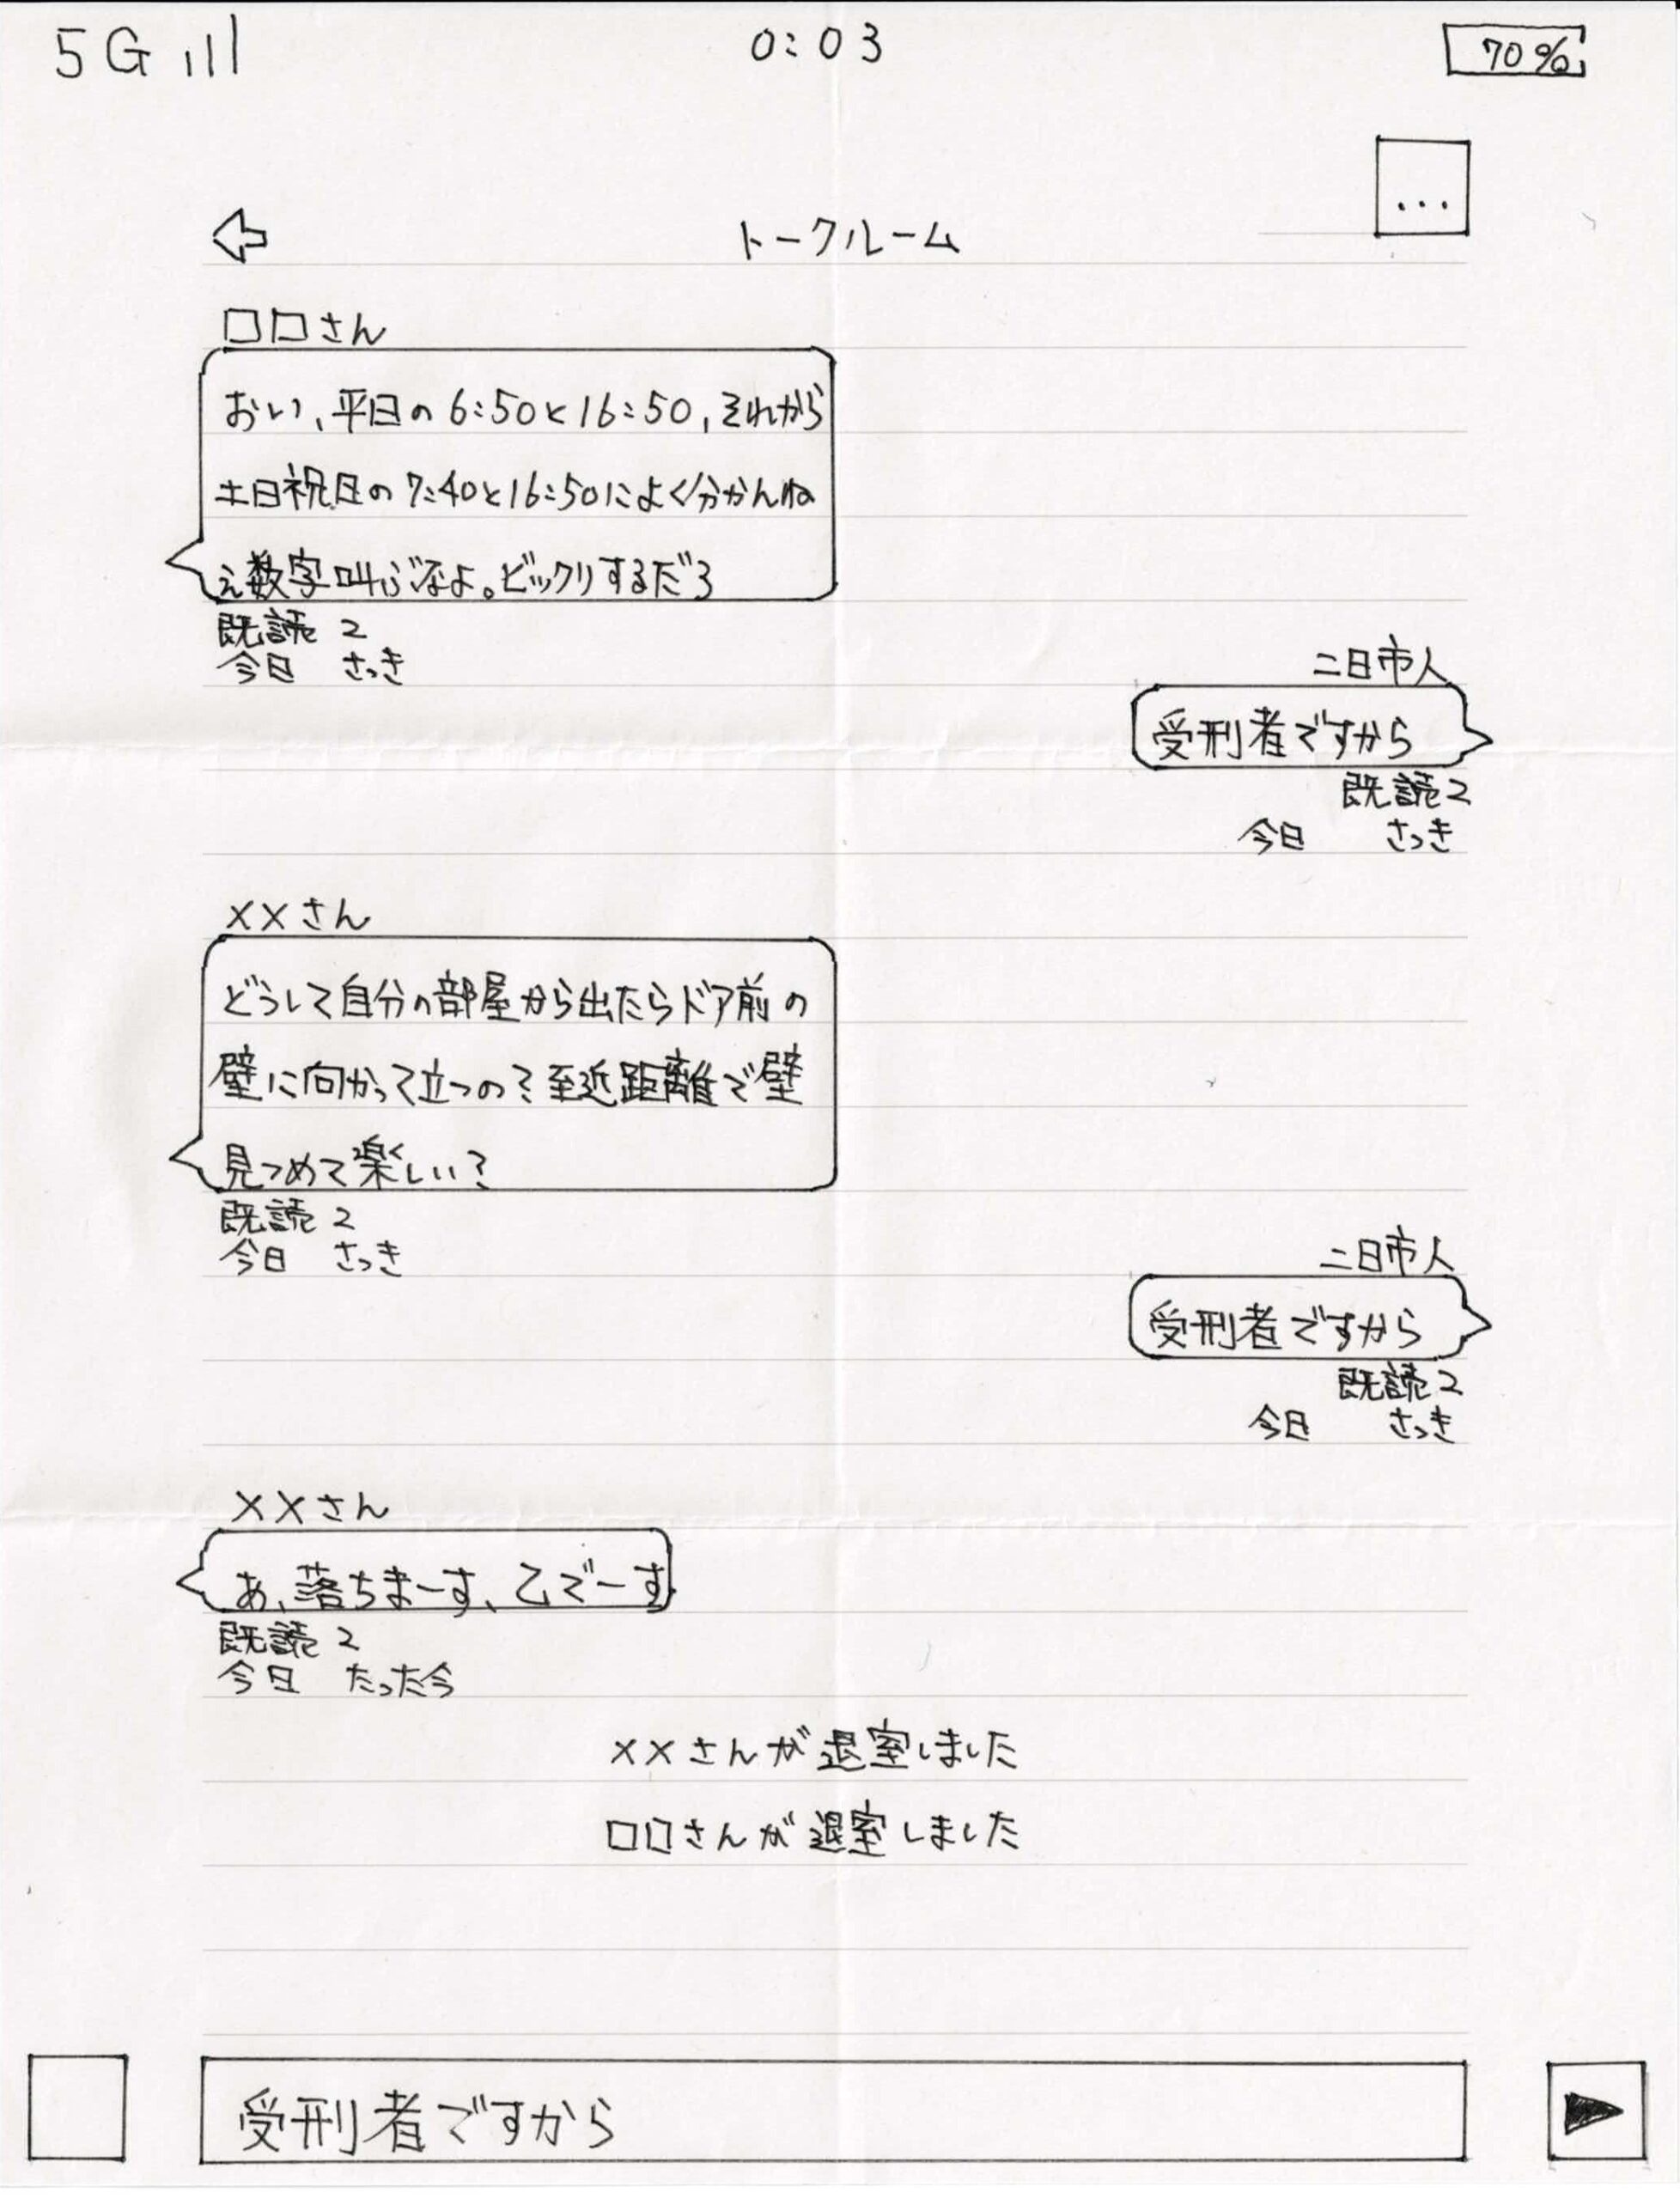 5G
0:03
70%
...
トークルーム
□□さん
おい、平日の6:50と16:50,それから
土日祝日の7:40と16:50によく分かんね
ぇ数字叫ぶなよ。ビックリするだろ
既読 2
今日 さっき
二日市人
受刑者ですから
既読2
今日 さっき
××さん
どうして自分の部屋から出たらドア前の
壁に向かって立つの?至近距離で壁
見つめて楽しい?
既読 2
今日 さっき
二日市人
受刑者ですから
既読2
今日 さっき
××さん
あ、落ちまーす、乙でーす
既読 2
今日 たった今
××さんが退室しました
□□さんが退室しました
受刑者ですから